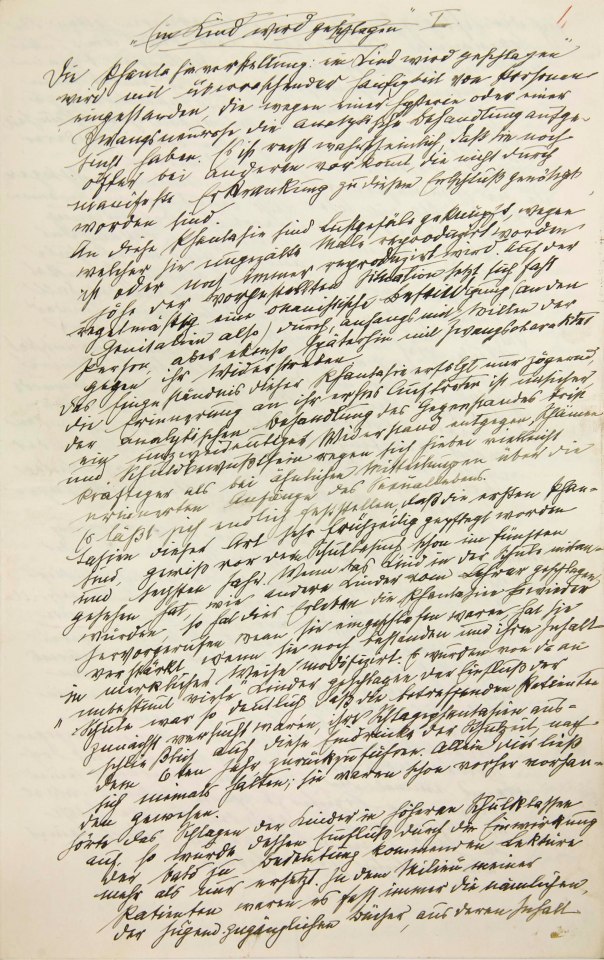 "Ein Kind wird geschlagen" I. 1
Die Phantasievorstellung: ein Kind wird geschlagen
wird mit überraschender Häufigkeit von Personen
eingestanden, die wegen einer Hysterie oder einer
Zwangsneurose die analytische Behandlung aufge-
sucht haben. Es ist recht wahrscheinlich, daß sie noch
öfter bei anderen vorkomt, die nicht durch
manifeste Erkrankung zu diesem Entschluß genötigt
worden sind.
An diese Phantasie sind Lustgefüle geknüpft, wegen
welcher sie ungezälte Male reproduzirt worden
ist oder noch immer reproduzirt wird. Auf der
Höhe der vorgestellten Situation setzt sich fast
regelmäßig eine onanistische Befriedigung (an den
Genitalien also) durch, anfangs mit Willen der
Person, aber ebenso späterhin mit Zwangscharakter
gegen ihr Widerstreben.
Das Eingeständnis dieser Phantasie erfolgt nur zögernd,
die Erinnerung an ihr erstes Auftreten ist unsicher,
der analytischen Behandlung des Gegenstandes tritt
ein unzweideutiger Widerstand entgegen, Schämen
und Schuldbewußtsein regen sich hiebei vielleicht
kräftiger als bei änlichen Mitteilungen über die
erinnerten Anfänge des Sexuallebens.
Es läßt sich endlich feststellen, daß die ersten Phan-
tasien dieser Art sehr frühzeitig gepflegt worden
sind, gewiß vor dem Schulbesuch, schon im fünften
und sechsten Jahr. Wenn das Kind in der Schule mitan-
gesehen hat, wie andere Kinder vom Lehrer geschlagen
wurden, so hat dies Erleben die Phantasien wieder
hervorgerufen, wenn sie eingeschlafen waren, hat sie
verstärkt, wenn sie noch bestanden und ihren Inhalt
in merklicher Weise modifizirt. Es wurden von da an
"unbestimt viele" Kinder geschlagen. Der Einfluß der
Schule war so deutlich, daß die betreffenden Patienten
zunächst versucht waren, ihre Schlagephantasien aus-
schließlich auf diese Eindrücke der Schulzeit, nach
dem 6ten Jahr, zurückzuführen. Allein dies ließ
sich niemals halten; sie waren schon vorher vorhan-
den gewesen.
Hörte das Schlagen der Kinder in höheren Schulklassen
auf, so wurde dessen Einfluß durch die Einwirkung
der bald zu Bedeutung kommenden Lektüre
mehr als nur ersetzt. In dem Milieu meiner
Patienten waren es fast immer die nämlichen,
der Jugend zugänglichen Bücher, aus deren Inhalt